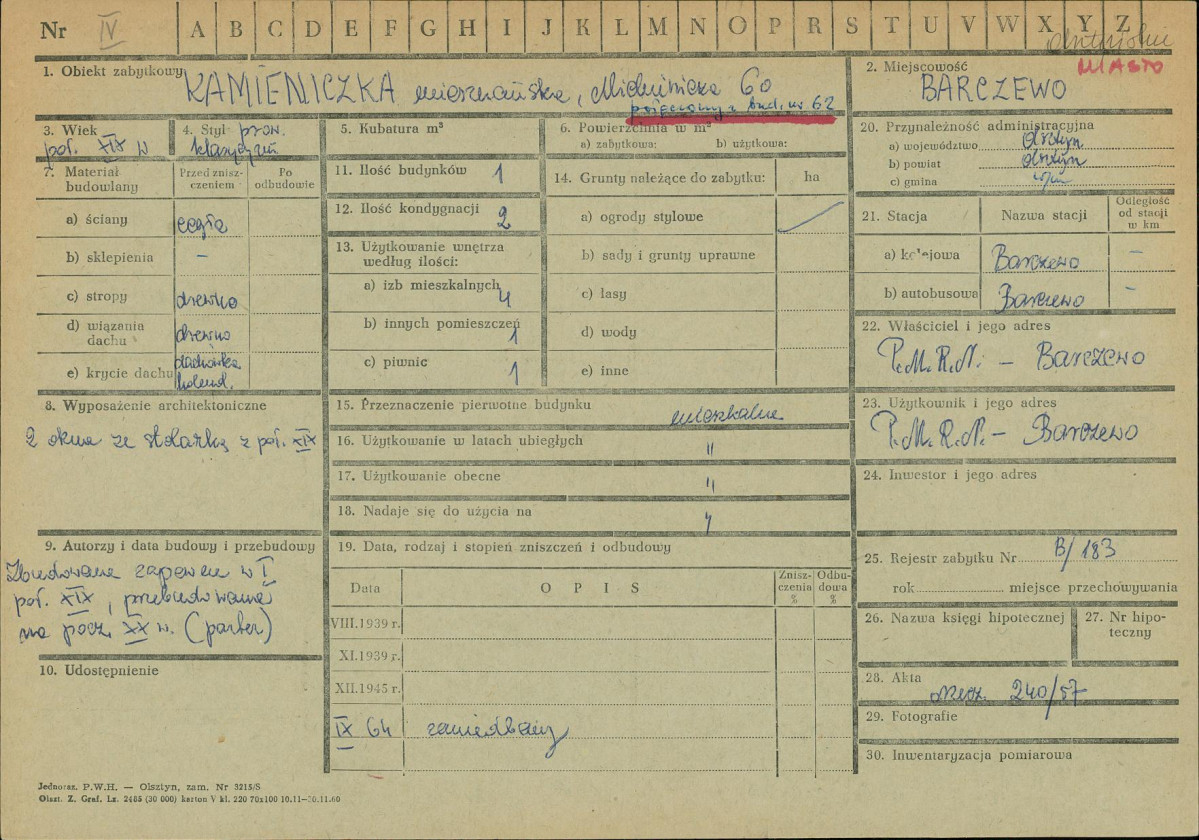 Nr IV A B C D E F G H I J K L M N O P R S T U V W X Y Z
MIASTO
1. Obiekt zabytkowy KAMIENICZKA mieszczańska, Mickiewicza 60
połączony z bud. nr 62
2. Miejscowość
BARCZEWO
3. Wiek
poł. XIX w
4. Styl prow.
klasycyzm
5. Kubatura m³
6. Powierzchnia w m²
a) zabytkowa: b) użytkowa:
7. Materiał budowlany
Przed zniszczeniem
Po odbudowie
a) ściany cegła
b) sklepienia –
c) stropy drewno
d) wiązania dachu drewno
e) krycie dachu dachówka holend.
8. Wyposażenie architektoniczne
2 okna ze stolarką z poł. XIX
9. Autorzy i data budowy i przebudowy
Zbudowana zapewne w I
poł. XIX, przebudowana
na pocz. XX w. (parter)
10. Udostępnienie
11. Ilość budynków 1
12. Ilość kondygnacji 2
13. Użytkowanie wnętrza
według ilości:
a) izb mieszkalnych 4
b) innych pomieszczeń 1
c) piwnic 1
14. Grunty należące do zabytku: ha
a) ogrody stylowe
b) sady i grunty uprawne
c) lasy
d) wody
e) inne
15. Przeznaczenie pierwotne budynku mieszkalne
16. Użytkowanie w latach ubiegłych "
17. Użytkowanie obecne "
18. Nadaje się do użycia na "
19. Data, rodzaj i stopień zniszczeń i odbudowy
Data O P I S Zniszczenia % Odbudowa %
VIII.1939 r.
XI.1939 r.
XII.1945 r.
IX 64 zaniedbany
20. Przynależność administracyjna
a) województwo Olsztyn
b) powiat Olsztyn
c) gmina
21. Stacja Nazwa stacji Odległość od stacji w km
a) kolejowa Barczewo –
b) autobusowa Barczewo –
22. Właściciel i jego adres
P.M.R.N. – Barczewo
23. Użytkownik i jego adres
P.M.R.N. – Barczewo
24. Inwestor i jego adres
25. Rejestr zabytku Nr B/183
rok miejsce przechowywania
26. Nazwa księgi hipotecznej
27. Nr hipoteczny
28. Akta
240/57
29. Fotografie
30. Inwentaryzacja pomiarowa
Jednoraz. P.W.H. — Olsztyn, zam. Nr 3215/S
Olszt. Z. Graf. Lz. 2485 (30 000) karton V kl. 220 70x100 10.11—30.11.60